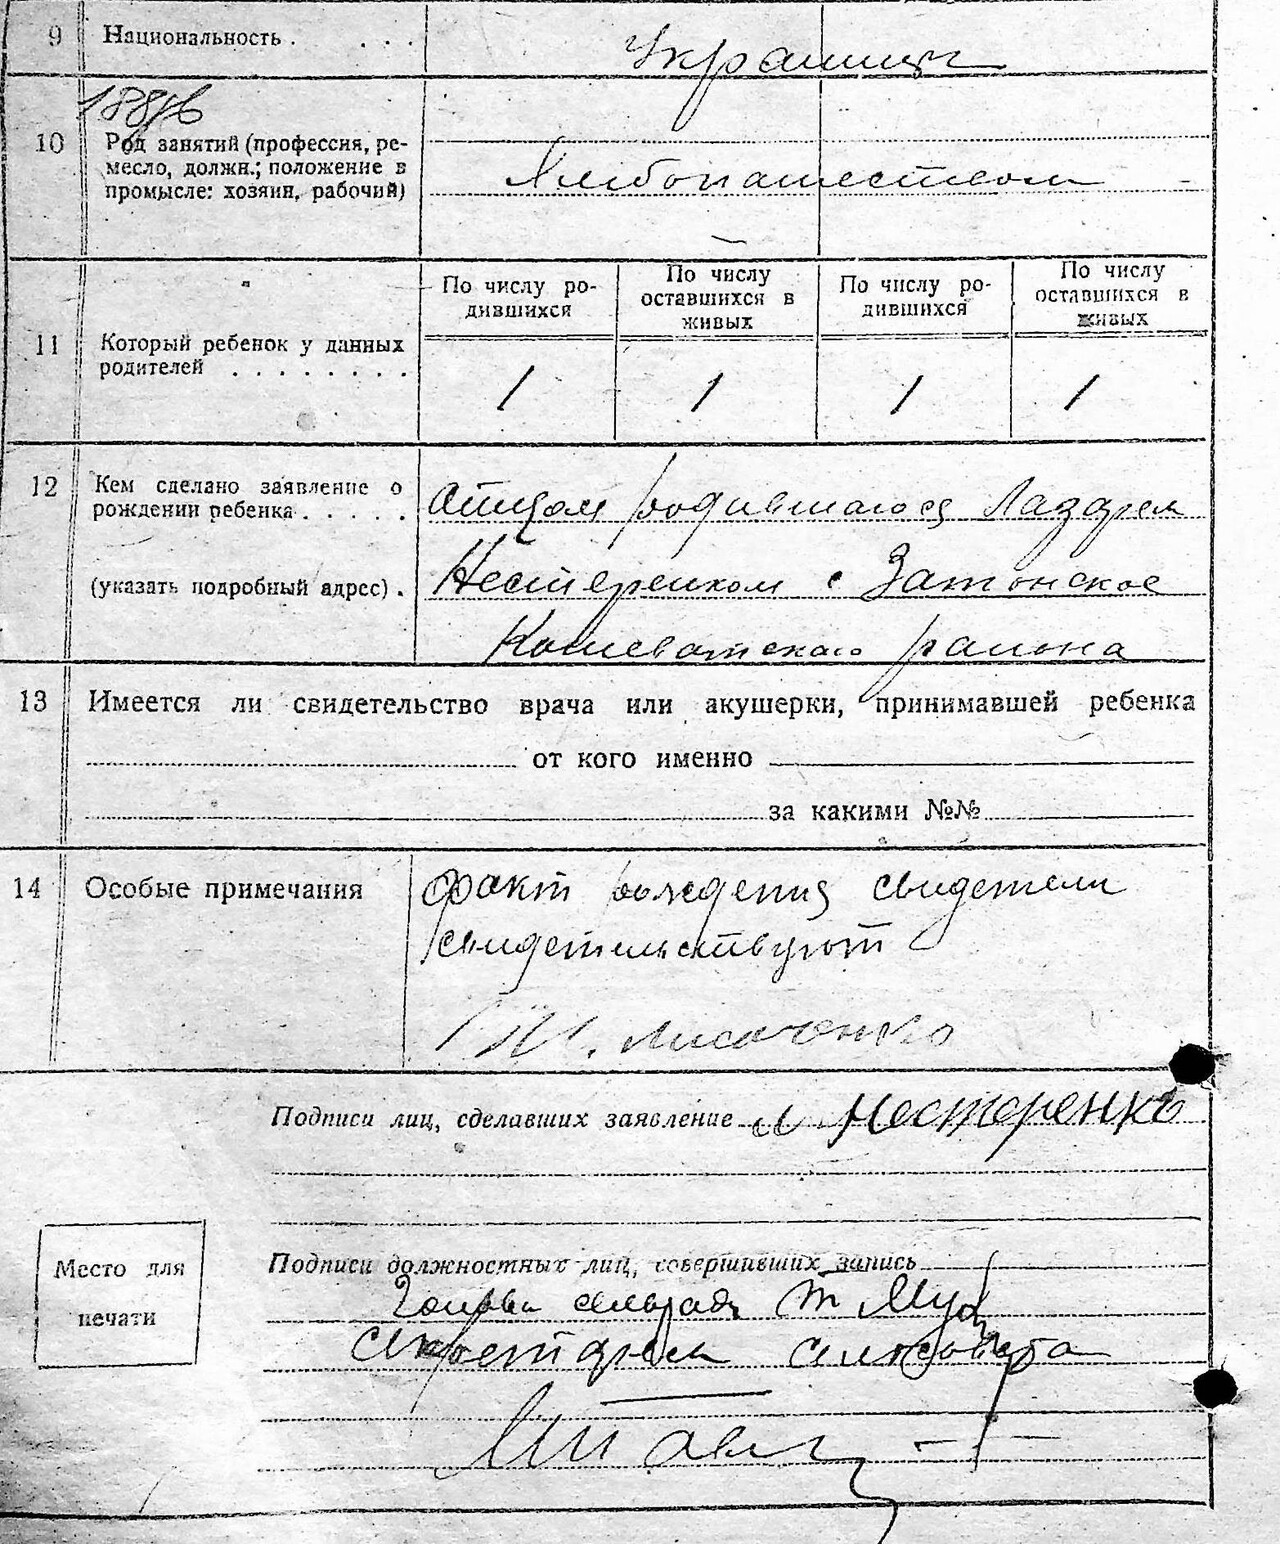 9 Национальность . . . . Украинцы
188
10 Род занятий (профессия, ре-
месло, должн.; положение в
промысле: хозяин, рабочий)
Хлебопашеством
11 Который ребенок у данных
родителей . . . . . . . .
По числу ро-
дившихся
По числу
оставшихся в
живых
По числу ро-
дившихся
По числу
оставшихся в
живых
1 1 1 1
12 Кем сделано заявление о
рождении ребенка . . . . .
(указать подробный адрес) .
Отцом родившагося Лазарем
Нестеренком с Затонское
района
13 Имеется ли свидетельство врача или акушерки, принимавшей ребенка
от кого именно
за какими №№
14 Особые примечания
Факт рождения свидетели
свидетельствуют
Лисаченко
Подписи лиц, сделавших заявление Л Нестеренко
Место для
печати
Подписи должностных лиц, совершивших запись
Голова сельради
Секретарем сельсовета